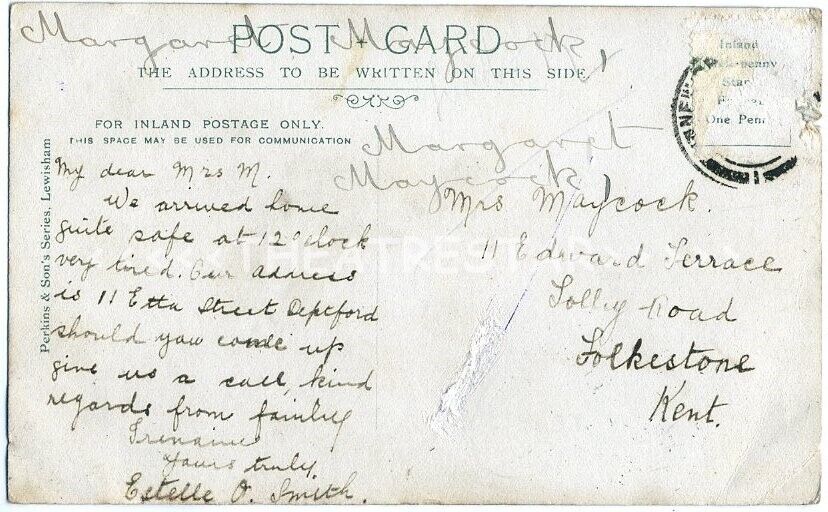 Margaret Maycock,
POST CARD
THE ADDRESS TO BE WRITTEN ON THIS SIDE
FOR INLAND POSTAGE ONLY.
THIS SPACE MAY BE USED FOR COMMUNICATION
Inland
Stamp
One Penny
Margaret
Maycock
Perkins & Son's Series, Lewisham
My dear Mrs M.
We arrived home
quite safe at 12 oclock
very tired. Our address
is 11 Etta Street Deptford
should yow come up
give us a call, kind
regards from family
yours truly
Estelle O. Smith.
Mrs Maycock.
11 Edward Terrace
Road
Folkestone
Kent.